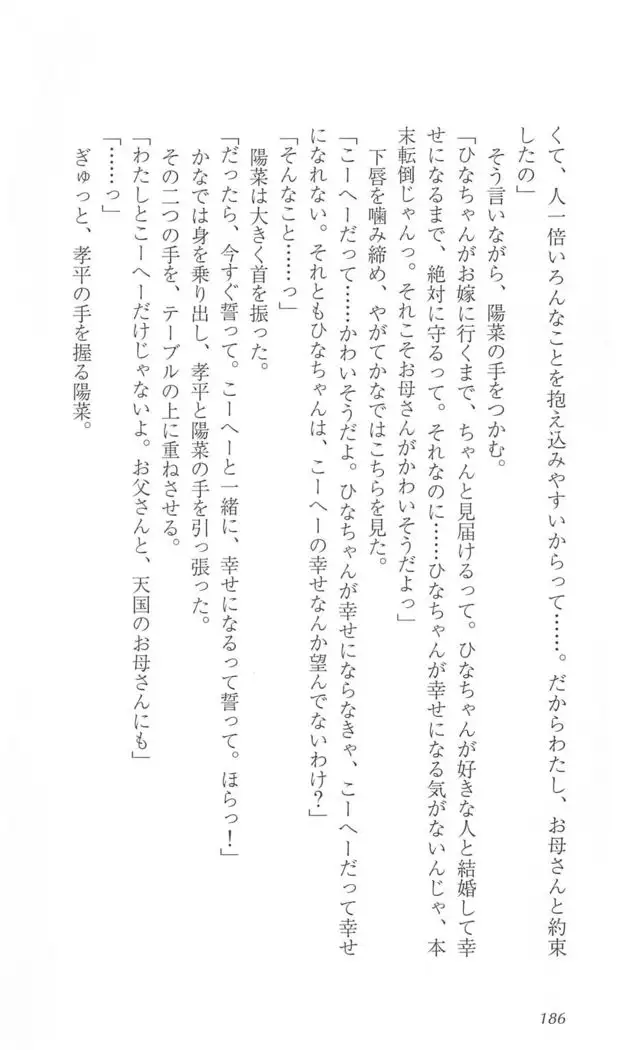 くて、人一倍いろんなことを抱え込みやすいからって……。だからわたし、お母さんと約束
したの」
そう言いながら、陽菜の手をつかむ。
「ひなちゃんがお嫁に行くまで、ちゃんと見届けるって。ひなちゃんが好きな人と結婚して幸
せになるまで、絶対に守るって。それなのに……ひなちゃんが幸せになる気がないんじゃ、本
末転倒じゃんっ。それこそお母さんがかわいそうだよっ」
下唇を噛み締め、やがてかなではこちらを見た。
「こーへーだって……かわいそうだよ。ひなちゃんが幸せにならなきゃ、こーへーだって幸せ
になれない。それともひなちゃんは、こーへーの幸せなんか望んでないわけ？」
「そんなこと……っ」
陽菜は大きく首を振った。
「だったら、今すぐ誓って。こーへーと一緒に、幸せになるって誓って。ほらっ！」
かなでは身を乗り出し、孝平と陽菜の手を引っ張った。
その二つの手を、テーブルの上に重ねさせる。
「わたしとこーへーだけじゃないよ。お父さんと、天国のお母さんにも」
「……っ」
ぎゅっと、孝平の手を握る陽菜。
186